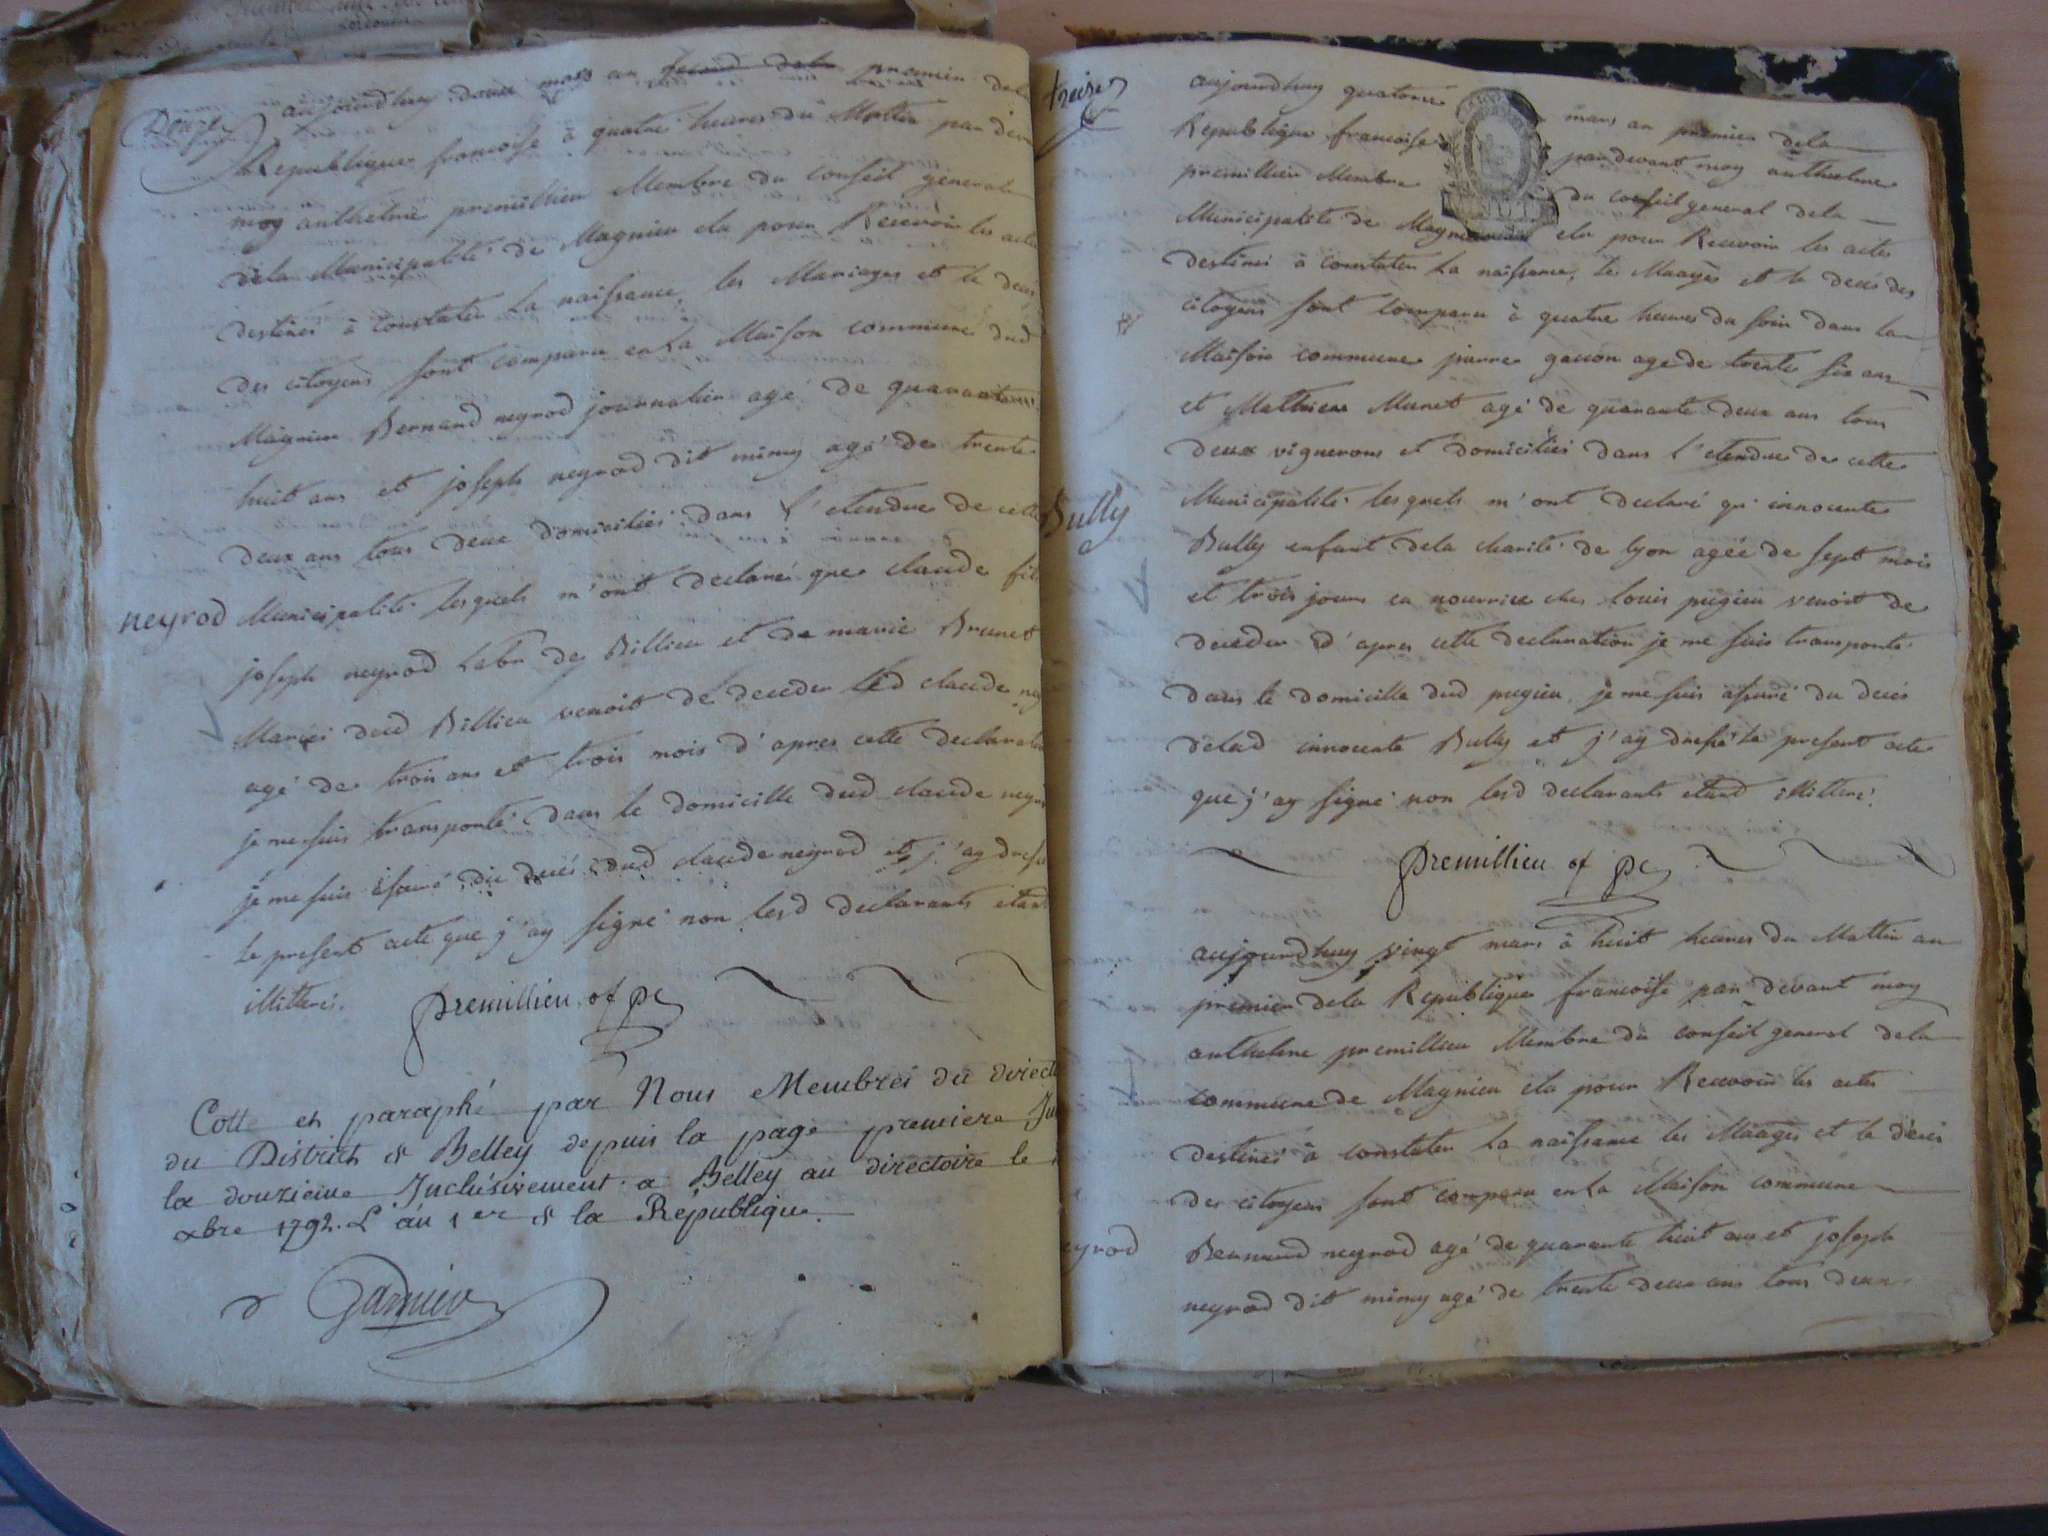 Douze
aujourdhuy douze mars an second dela premier dela
Republique françoise à quatre heures du Mattin par devant
moy anthelme premillieu Membre du conseil general
dela Municipalité de Magnieu elu pour Recevoir les actes
destinés à constater La naissance, les Mariages et le decés
des citoyens sont comparu en La Maison commune dud
Magnieu Bernard neyrod journalier agé de quarante
huit ans et joseph neyrod dit mimy agé de trente
deux ans tous deux domiciliés dans l'etendue de cette
neyrod
Municipalité lesquels m'ont declaré que claude fils
joseph neyrod Labr de Billieu et de marie Brunet
Mariés dud Billieu venoit de deceder led claude
agé de trois ans et trois mois d'apres cette declaration
je me suis transporté dans le domicille dud claude neyrod
je me suis assuré du decés dud claude neyrod et j'ay dressé
Le present acte que j'ay signé non lesd declarants etant
illitterés.
premillieu of pc
Cotté et paraphé par Nous Membres du direct
du District de Belley depuis la page premiere Ju
la douzieme Inclusivement a Belley au directoire le
xbre 1792. L'an 1er de la République.
Garnier
treize
aujourdhuy quatorze mars an premier dela
Republique françoise par devant moy anthelme
premillieu Membre du conseil general dela
Municipalité de Magnieu elu pour Recevoir les actes
destinés à constater La naissance, les Maages et le decés des
citoyens sont comparu à quatre heures du soir dans La
Maison commune pierre gacon age de trente six ans
et Mathieu Munet agé de quarante deux ans tous
deux vignerons et domiciliés dans l'etendue de cette
Bully
Municipalité lesquels m'ont declaré qu'innocente
Bully enfant dela charité de lyon agée de sept mois
et trois jours en nourrice ches louis pugieu venoit de
deceder d'apres cette declaration je me suis transporté
dans le domicille dud pugieu, je me suis assuré du decés
delad innocente Bully et j'ay dressé le present acte
que j'ay signé non lesd declarants etant illitteré.
premillieu of pc
aujourdhuy vingt mars à huit heures du Mattin an
premier dela Republique françoise par devant moy
anthelme premillieu Membre du conseil general dela
commune de Magnieu elu pour Recevoir les actes
destinés à constater La naissance les Maages et le decés
des citoyens sont comparu en La Maison commune
eyrod
Bernard neyrod agé de quarante huit ans et joseph
neyrod dit mimy agé de trente deux ans tous deux